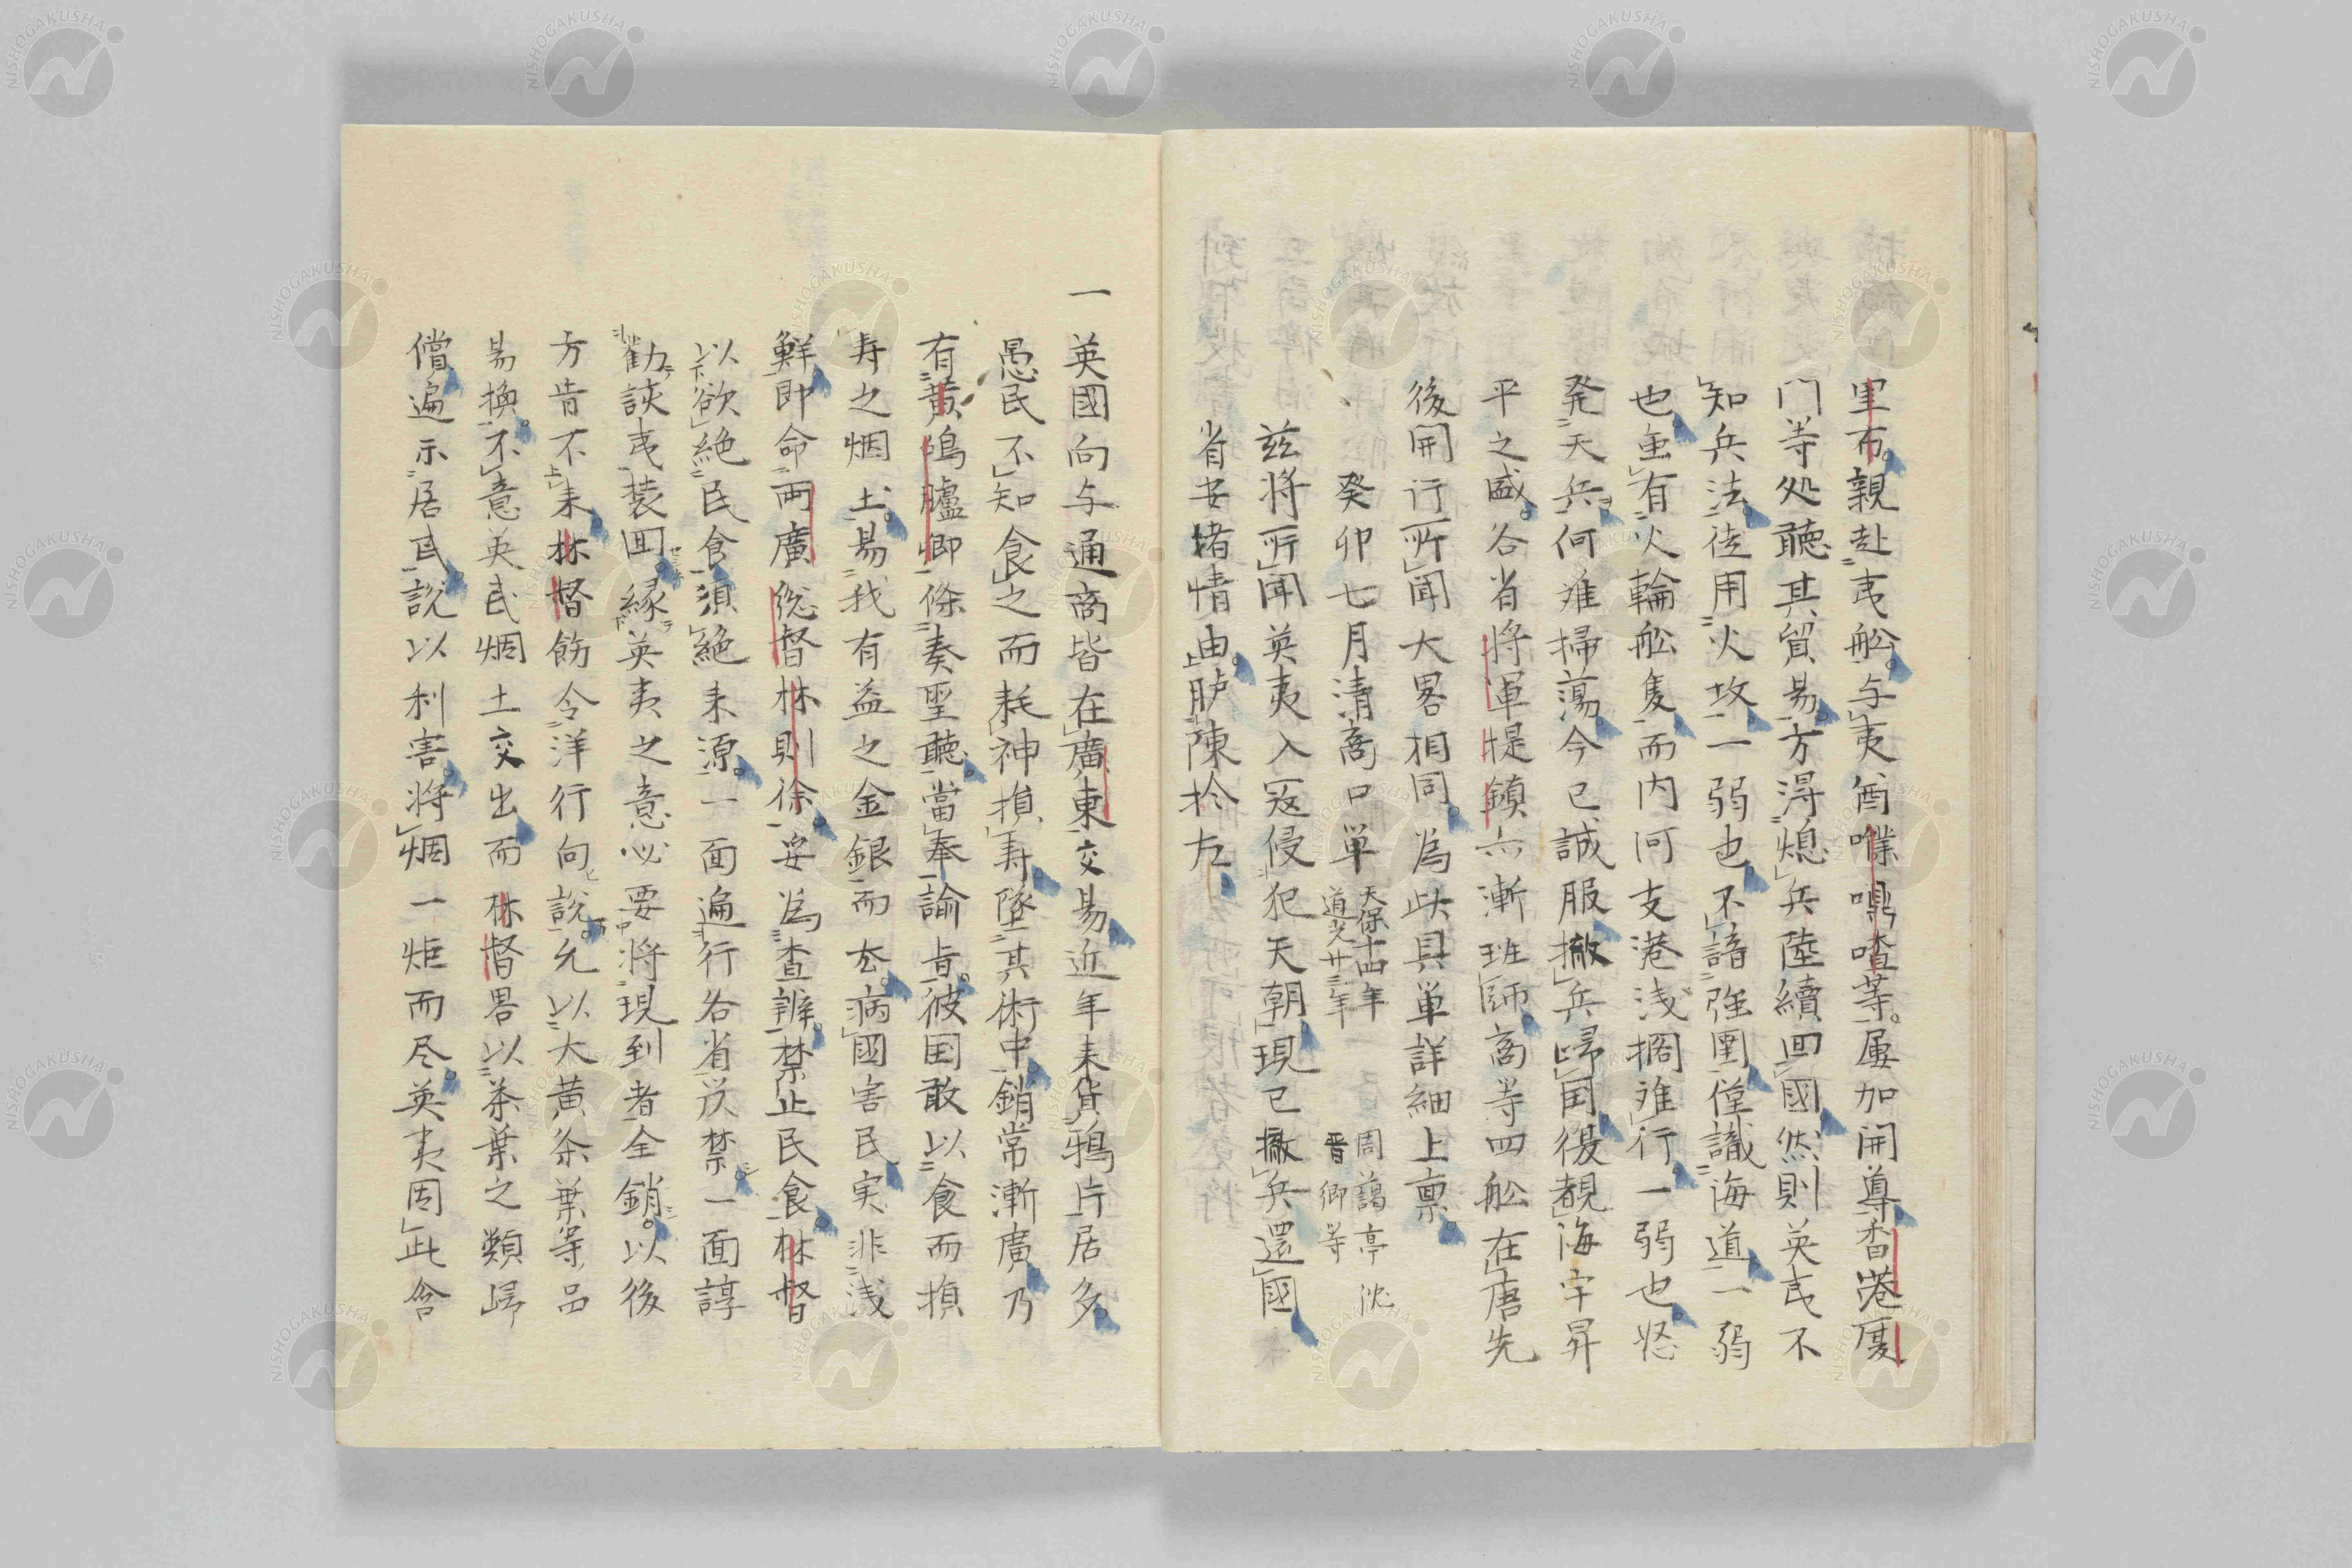 里布親赴夷舩与夷酋㗼㗼喳等屡加開導香港厦
门等处聽其貿易方得熄兵陸續回國然則英夷不
知兵法徒用火攻一弱也不諳強圍僅識海道一弱
也虽有火輪舩隻而内河支港浅搁难行一弱也怒
発天兵何难掃蕩今已誠服撤兵歸国復覩海宇昇
平之盛各省将軍提鎮亦漸班師商等四舩在唐先
後開行所聞大畧相同為此具单詳細上禀
癸卯七月清商口单 天保十四年 道光廿三年 周藹亭 沈晋卿等
兹将所聞英夷入寇侵犯天朝現已撤兵還國
省安堵情由胪陳於左
一英國向与通商皆在廣東交易近年来貨鴉片居多
愚民不知食之而耗神損寿墜其術中銷常漸廣乃
有黄鳴臚卿條奏聖聽當奉諭旨彼国敢以食而損
寿之烟土易我有益之金銀而去病國害民実非浅
鮮即命両廣総督林則徐妥為查辨禁止民食林督
以欲絶民食須絶来源一面遍行各省厳禁一面諄
勸談夷装回縁英夷之意必要将現到者全銷以後
方肯不来林督飭令洋行向説允以大黄茶葉等品
易換不意英民烟土交出而林督畧以茶葉之類歸
償遍示居民説以利害将烟一炬而尽英夷因此含